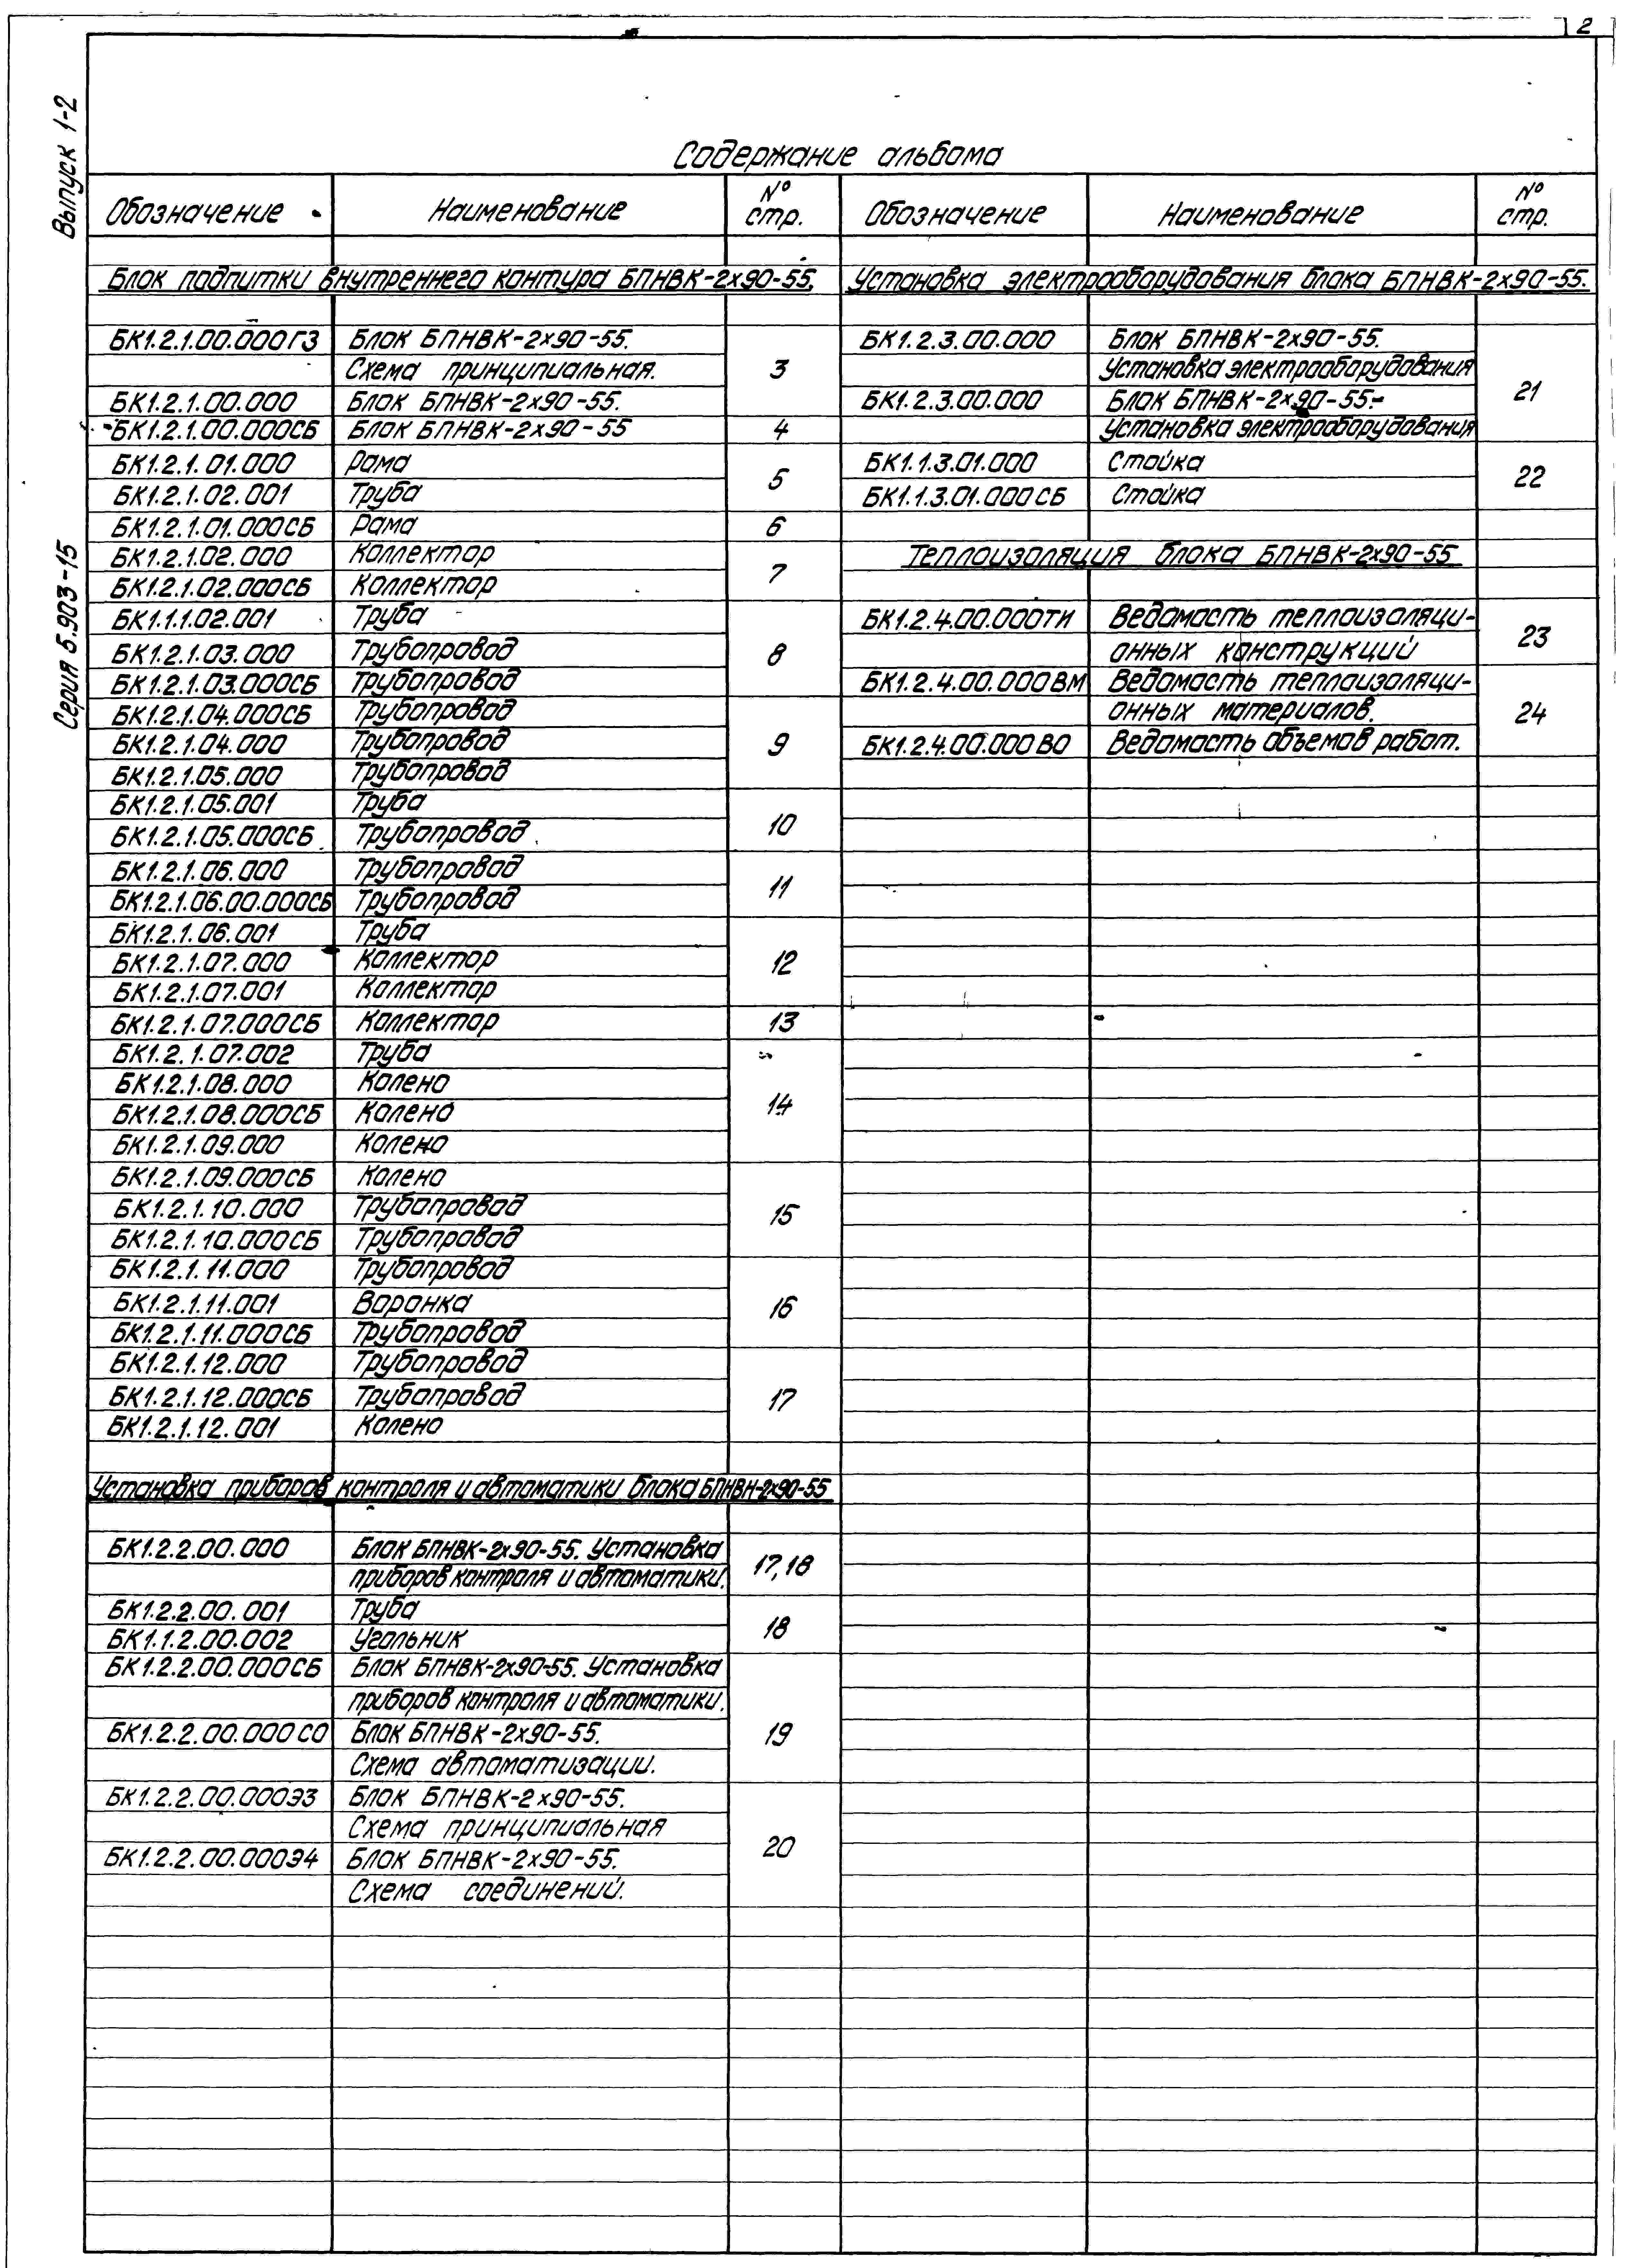 2
Выпуск 1-2
Серия 5.903-15
Содержание альбома
Обозначение Наименование № стр. Обозначение Наименование № стр.
Блок подпитки внутреннего контура БПНВК-2х90-55.
БК1.2.1.00.000Г3 Блок БПНВК-2х90-55.
Схема принципиальная. 3
БК1.2.1.00.000 Блок БПНВК-2х90-55.
БК1.2.1.00.000СБ Блок БПНВК-2х90-55 4
БК1.2.1.01.000 Рама
5
БК1.2.1.02.001 Труба
БК1.2.1.01.000СБ Рама 6
БК1.2.1.02.000 Коллектор
7
БК1.2.1.02.000СБ Коллектор
БК1.1.1.02.001 Труба
БК1.2.1.03.000 Трубопровод 8
БК1.2.1.03.000СБ Трубопровод
БК1.2.1.04.000СБ Трубопровод
БК1.2.1.04.000 Трубопровод 9
БК1.2.1.05.000 Трубопровод
БК1.2.1.05.001 Труба
10
БК1.2.1.05.000СБ Трубопровод
БК1.2.1.06.000 Трубопровод
11
БК1.2.1.06.00.000СБ Трубопровод
БК1.2.1.06.001 Труба
БК1.2.1.07.000 Коллектор 12
БК1.2.1.07.001 Коллектор
БК1.2.1.07.000СБ Коллектор 13
БК1.2.1.07.002 Труба
БК1.2.1.08.000 Колено
14
БК1.2.1.08.000СБ Колено
БК1.2.1.09.000 Колено
БК1.2.1.09.000СБ Колено
БК1.2.1.10.000 Трубопровод 15
БК1.2.1.10.000СБ Трубопровод
БК1.2.1.11.000 Трубопровод
БК1.2.1.11.001 Воронка 16
БК1.2.1.11.000СБ Трубопровод
БК1.2.1.12.000 Трубопровод
БК1.2.1.12.000СБ Трубопровод 17
БК1.2.1.12.001 Колено
Установка приборов контроля и автоматики блока БПНВН-2х90-55
БК1.2.2.00.000 Блок БПНВК-2х90-55. Установка
17,18
приборов контроля и автоматики.
БК1.2.2.00.001 Труба
18
БК1.1.2.00.002 Угольник
БК1.2.2.00.000СБ Блок БПНВК-2х90-55. Установка
приборов контроля и автоматики.
БК1.2.2.00.000СО Блок БПНВК-2х90-55. 19
Схема автоматизации.
БК1.2.2.00.000Э3 Блок БПНВК-2х90-55.
Схема принципиальная
20
БК1.2.2.00.000Э4 Блок БПНВК-2х90-55.
Схема соединений.
Установка электрооборудования блока БПНВК-2х90-55.
БК1.2.3.00.000 Блок БПНВК-2х90-55.
Установка электрооборудования
21
БК1.2.3.00.000 Блок БПНВК-2х90-55.
Установка электрооборудования
БК1.1.3.01.000 Стойка
22
БК1.1.3.01.000СБ Стойка
Теплоизоляция блока БПНВК-2х90-55
БК1.2.4.00.000ТИ Ведомость теплоизоляци-
23
онных конструкций
БК1.2.4.00.000ВМ Ведомость теплоизоляци-
онных материалов. 24
БК1.2.4.00.000ВО Ведомость объемов работ.